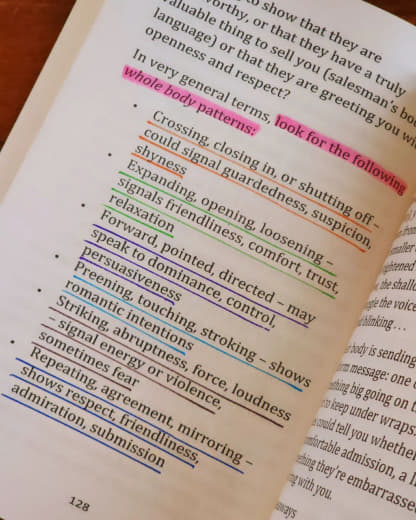 to show that they are
worthy, or that they have a truly
valuable thing to sell you (salesman's
language) or that they are greeting you
openness and respect?
In very general terms, look for the following
whole body patterns:
• Crossing, closing in, or shutting off –
could signal guardedness, suspicion,
shyness
• Expanding, opening, loosening –
signals friendliness, comfort, trust,
relaxation
• Forward, pointed, directed – may
speak to dominance, control,
persuasiveness
• Preening, touching, stroking – shows
romantic intentions
• Striking, abruptness, force, loudness
– signal energy or violence,
sometimes fear
• Repeating, agreement, mirroring –
shows respect, friendliness,
admiration, submission
128
the shallow
the voice
blinking...
body is sending
message: one
big going on
to keep under wraps
could tell you whether
admission, a
they're embarrassed
with you.